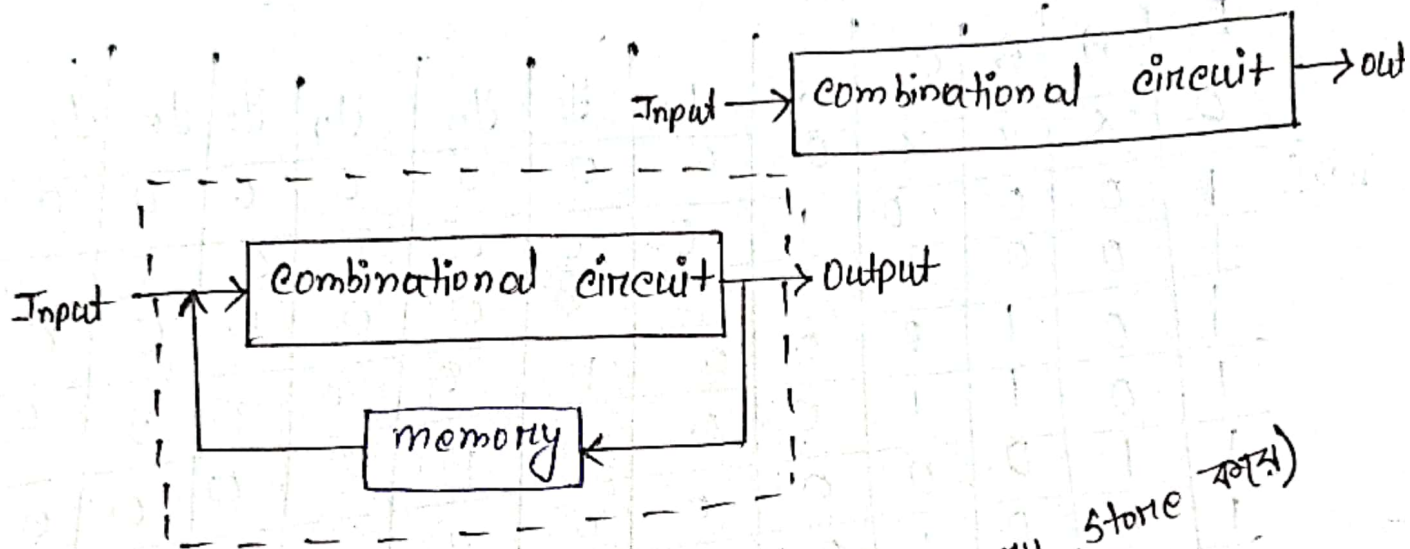 Input → combinational circuit → out
Input → combinational circuit → Output
memory
store করে)